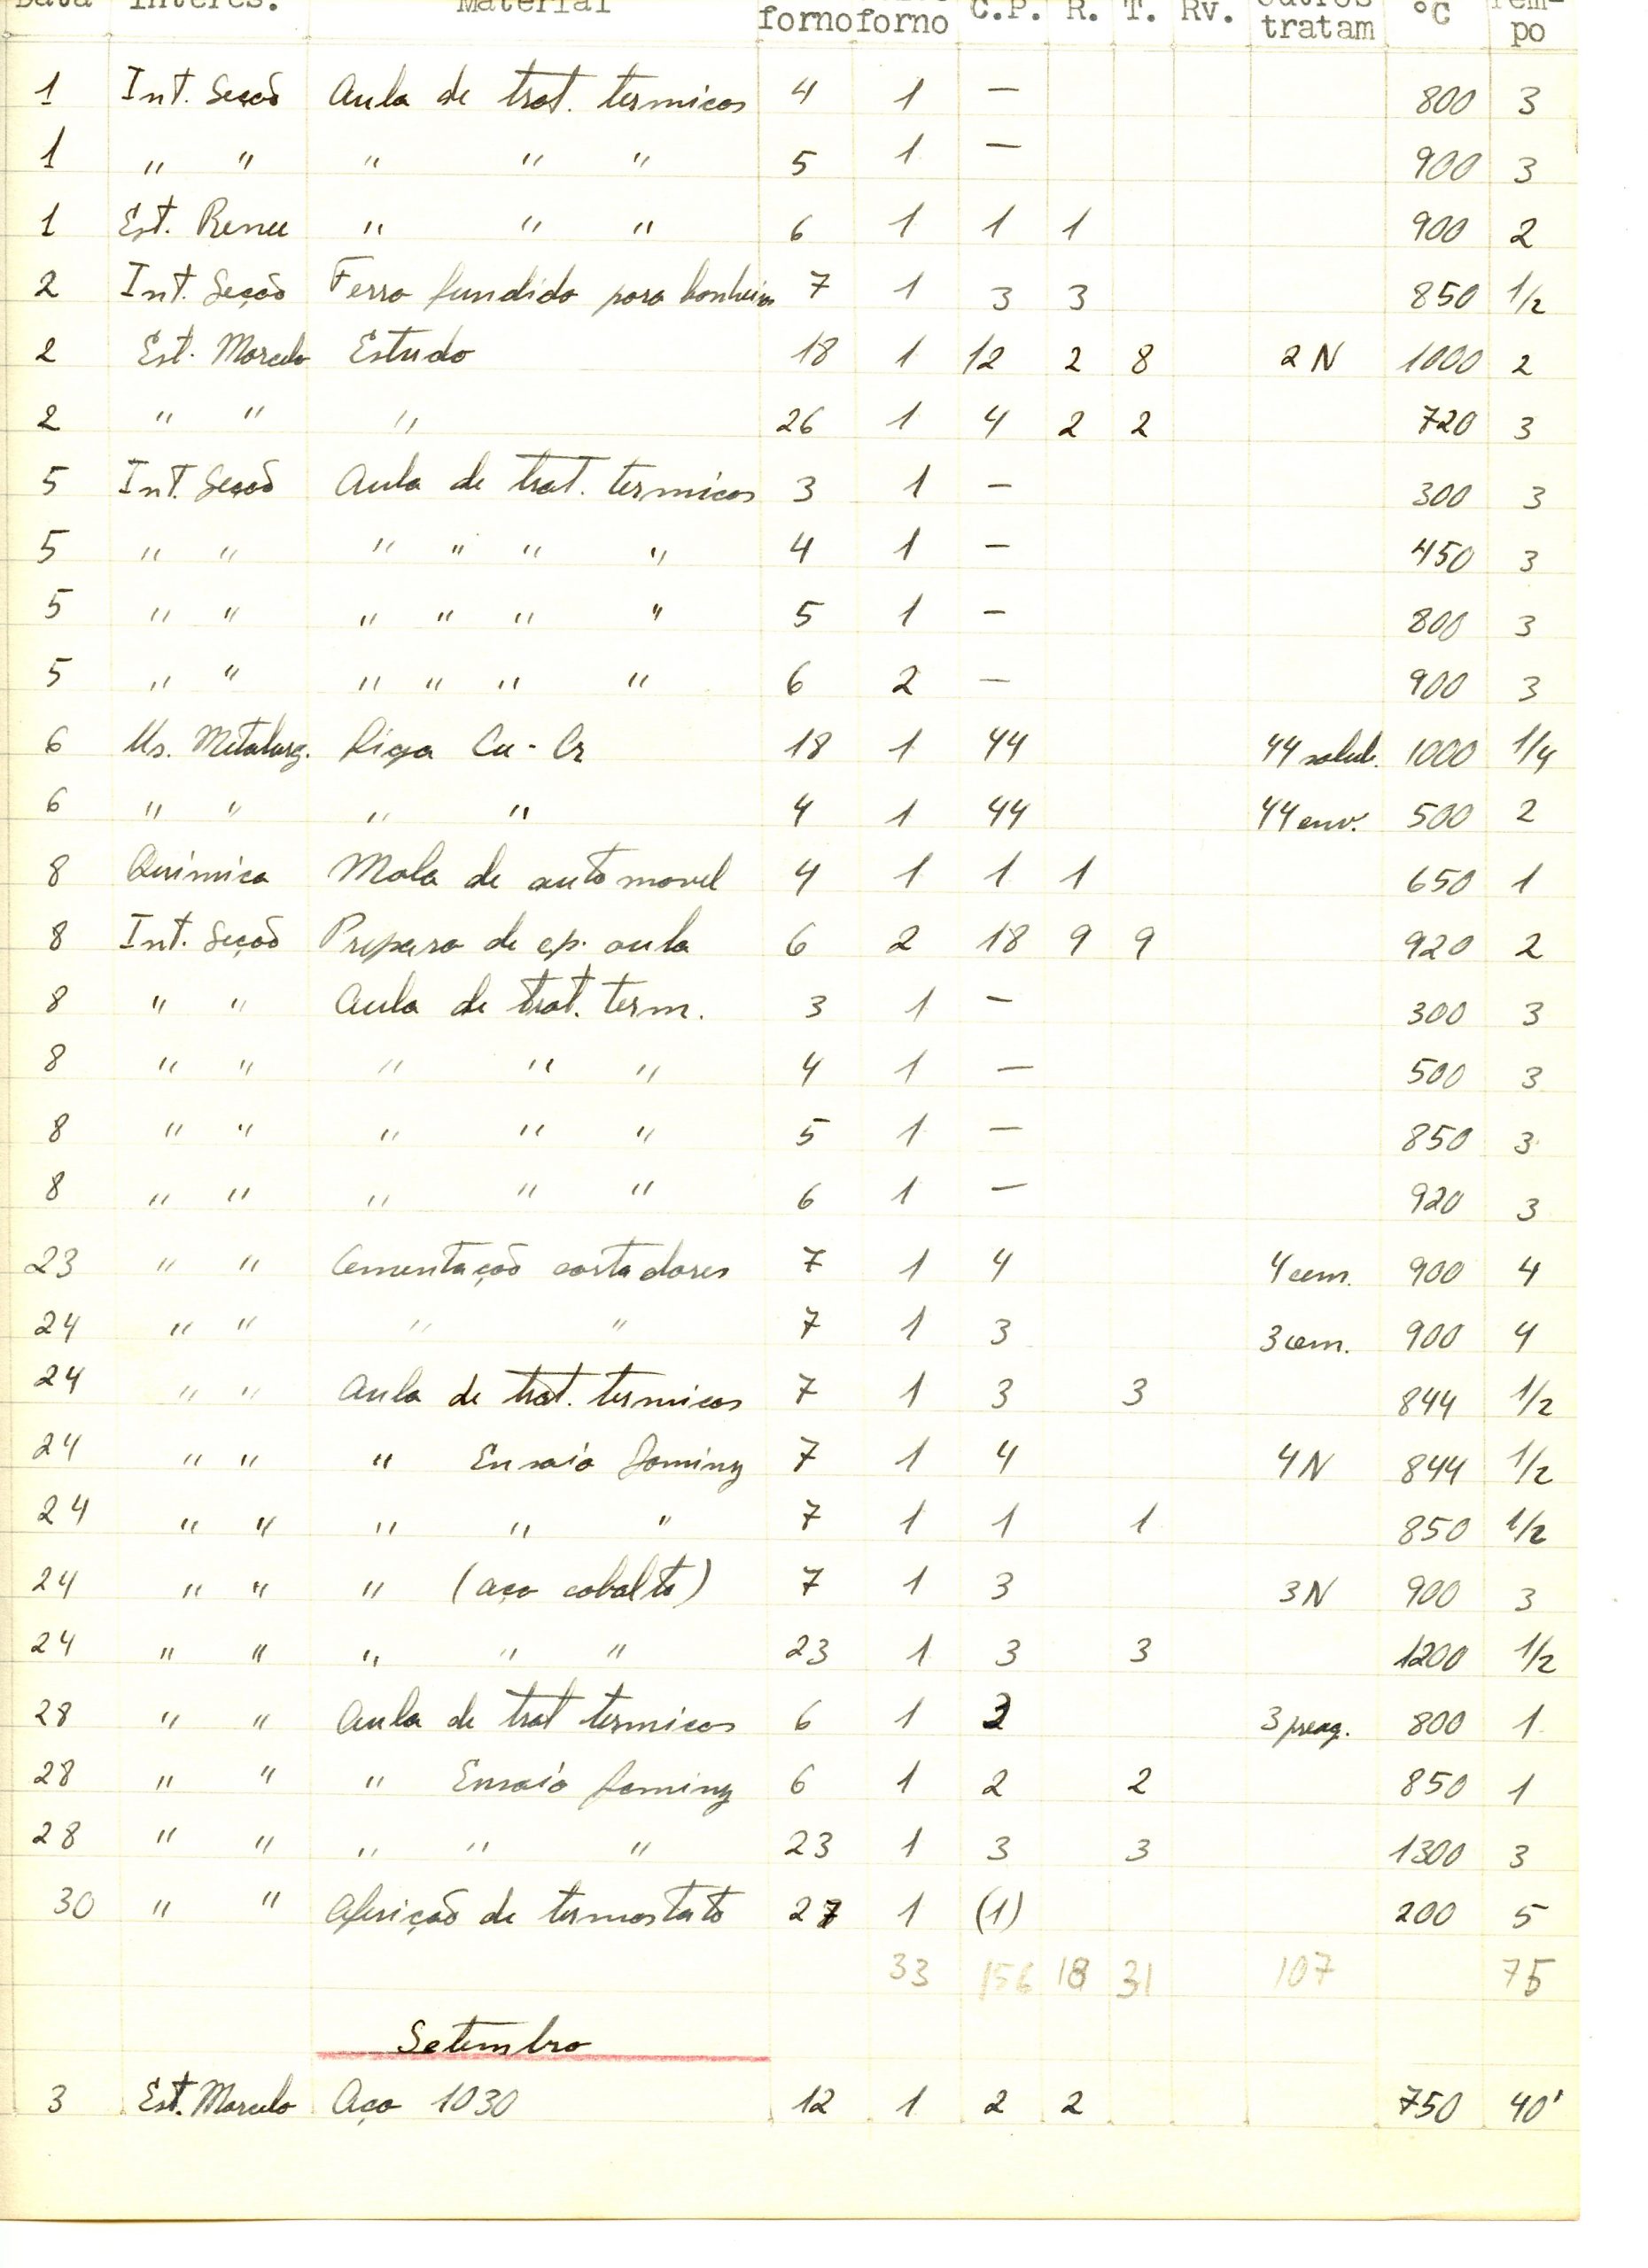 Data Interes. Material forno forno C.P. R. T. Rv. outros tratam °C Tem-po
1 Int. Secão Aula de trat. termicos 4 1 — 800 3
1 " " " " " 5 1 — 900 3
1 Est. Renee " " " 6 1 1 1 900 2
2 Int. Seção Ferro fundido para 7 1 3 3 850 1/2
2 Est. Marcelo Estudo 18 1 12 2 8 2 N 1000 2
2 " " " 26 1 4 2 2 720 3
5 Int. Secão Aula de trat. termicos 3 1 — 300 3
5 " " " " " " 4 1 — 450 3
5 " " " " " " 5 1 — 800 3
5 " " " " " " 6 2 — 900 3
6 Us. Metalurg. Liga Cu - Cr 18 1 44 44 solub. 1000 1/4
6 " " " " 4 1 44 44 env. 500 2
8 Quimica Mola de automovel 4 1 1 1 650 1
8 Int. Seção Preparo de cp. aula 6 2 18 9 9 920 2
8 " " Aula de trat. term. 3 1 — 300 3
8 " " " " " 4 1 — 500 3
8 " " " " " 5 1 — 850 3
8 " " " " " 6 1 — 920 3
23 " " Cementação cortadores 7 1 4 4 cem. 900 4
24 " " " " 7 1 3 3 cem. 900 4
24 " " Aula de trat. termicos 7 1 3 3 844 1/2
24 " " " Ensaio Jominy 7 1 4 4 N 844 1/2
24 " " " " " 7 1 1 1 850 1/2
24 " " " (aço cobalto) 7 1 3 3 N 900 3
24 " " " " " 23 1 3 3 1200 1/2
28 " " Aula de trat termicos 6 1 3 3 800 1
28 " " " Ensaio Jominy 6 1 2 2 850 1
28 " " " " " 23 1 3 3 1300 3
30 " " Aferição de termostato 27 1 (1) 200 5
33 156 18 31 107 75
Setembro
3 Est. Marcelo Aço 1030 12 1 2 2 750 40'